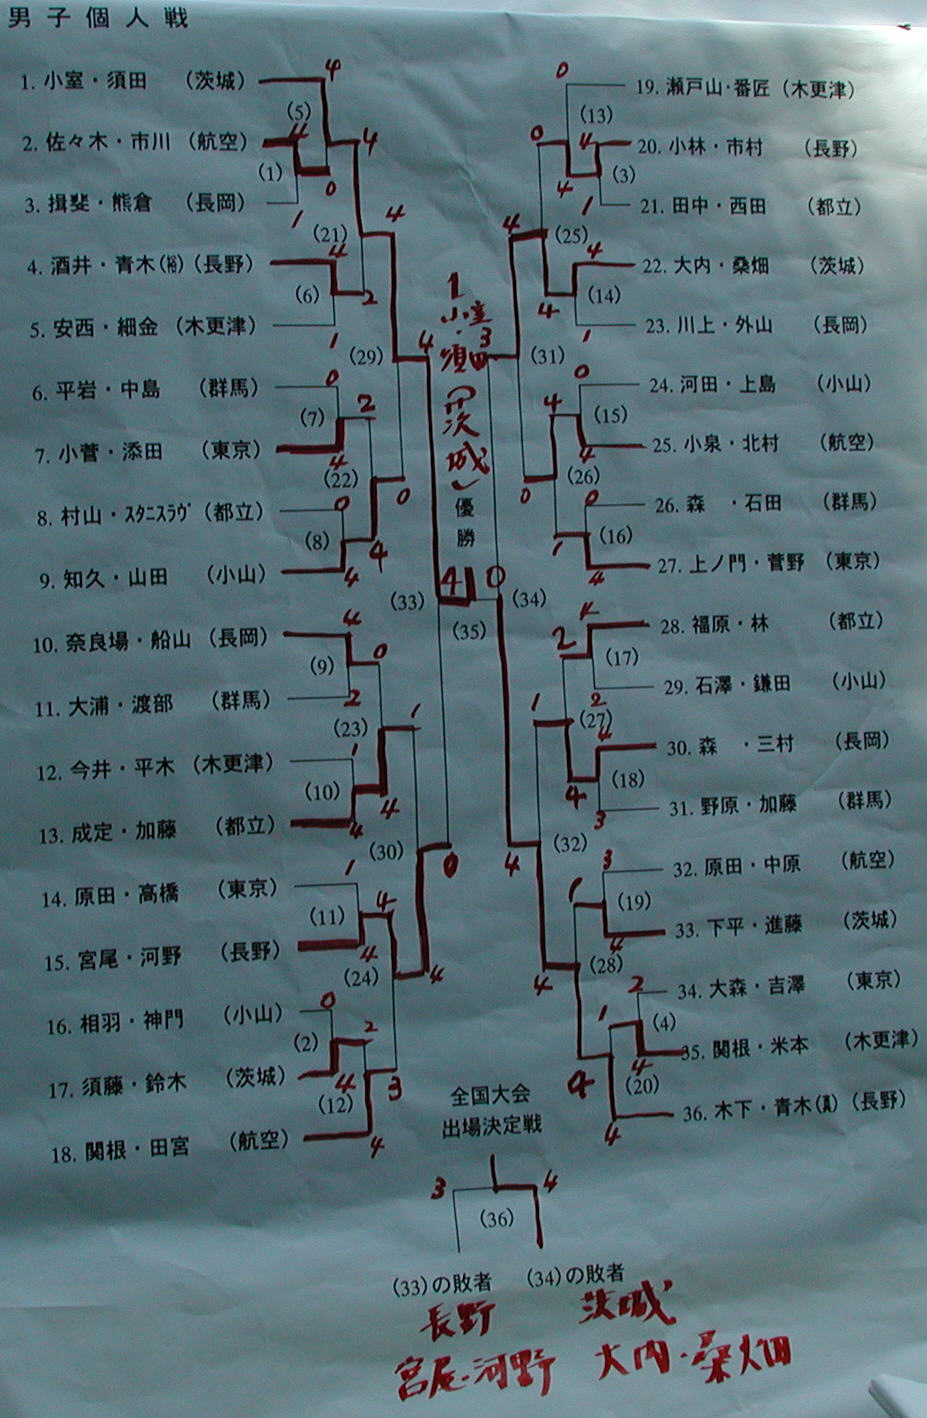 男子個人戦
1. 小室・須田 (茨城)
2. 佐々木・市川 (航空)
3. 揖斐・熊倉 (長岡)
4. 酒井・青木(裕) (長野)
5. 安西・細金 (木更津)
6. 平岩・中島 (群馬)
7. 小菅・添田 (東京)
8. 村山・ｽﾀﾆｽﾗｳﾞ (都立)
9. 知久・山田 (小山)
10. 奈良場・船山 (長岡)
11. 大浦・渡部 (群馬)
12. 今井・平木 (木更津)
13. 成定・加藤 (都立)
14. 原田・高橋 (東京)
15. 宮尾・河野 (長野)
16. 相羽・神門 (小山)
17. 須藤・鈴木 (茨城)
18. 関根・田宮 (航空)
4
(5)
4
4
(1)
0
1
(21)
4
4
(6)
2
1
(29)
4
0
(7)
2
4
(22)
0
0
(8)
4
4
(33)
4
(9)
0
2
(23)
1
1
(10)
4
4
(30)
0
1
(11)
4
4
(24)
4
0
(2)
2
4
(12)
3
4
1
小室・須田
(茨城)
優勝
4
0
(35)
19. 瀬戸山・番匠 (木更津)
20. 小林・市村 (長野)
21. 田中・西田 (都立)
22. 大内・桑畑 (茨城)
23. 川上・外山 (長岡)
24. 河田・上島 (小山)
25. 小泉・北村 (航空)
26. 森 ・石田 (群馬)
27. 上ノ門・菅野 (東京)
28. 福原・林 (都立)
29. 石澤・鎌田 (小山)
30. 森 ・三村 (長岡)
31. 野原・加藤 (群馬)
32. 原田・中原 (航空)
33. 下平・進藤 (茨城)
34. 大森・吉澤 (東京)
35. 関根・米本 (木更津)
36. 木下・青木(真) (長野)
0
(13)
0
4
4
(3)
1
4
(25)
4
4
(14)
1
3
(31)
0
4
(15)
4
0
(26)
0
1
(16)
4
(34)
4
2
(17)
2
1
(27)
4
4
(18)
3
4
(32)
3
1
(19)
4
4
(28)
2
1
(4)
4
4
(20)
4
全国大会
出場決定戦
3
4
(36)
(33)の敗者 (34)の敗者
長野 茨城
宮尾・河野 大内・桑畑